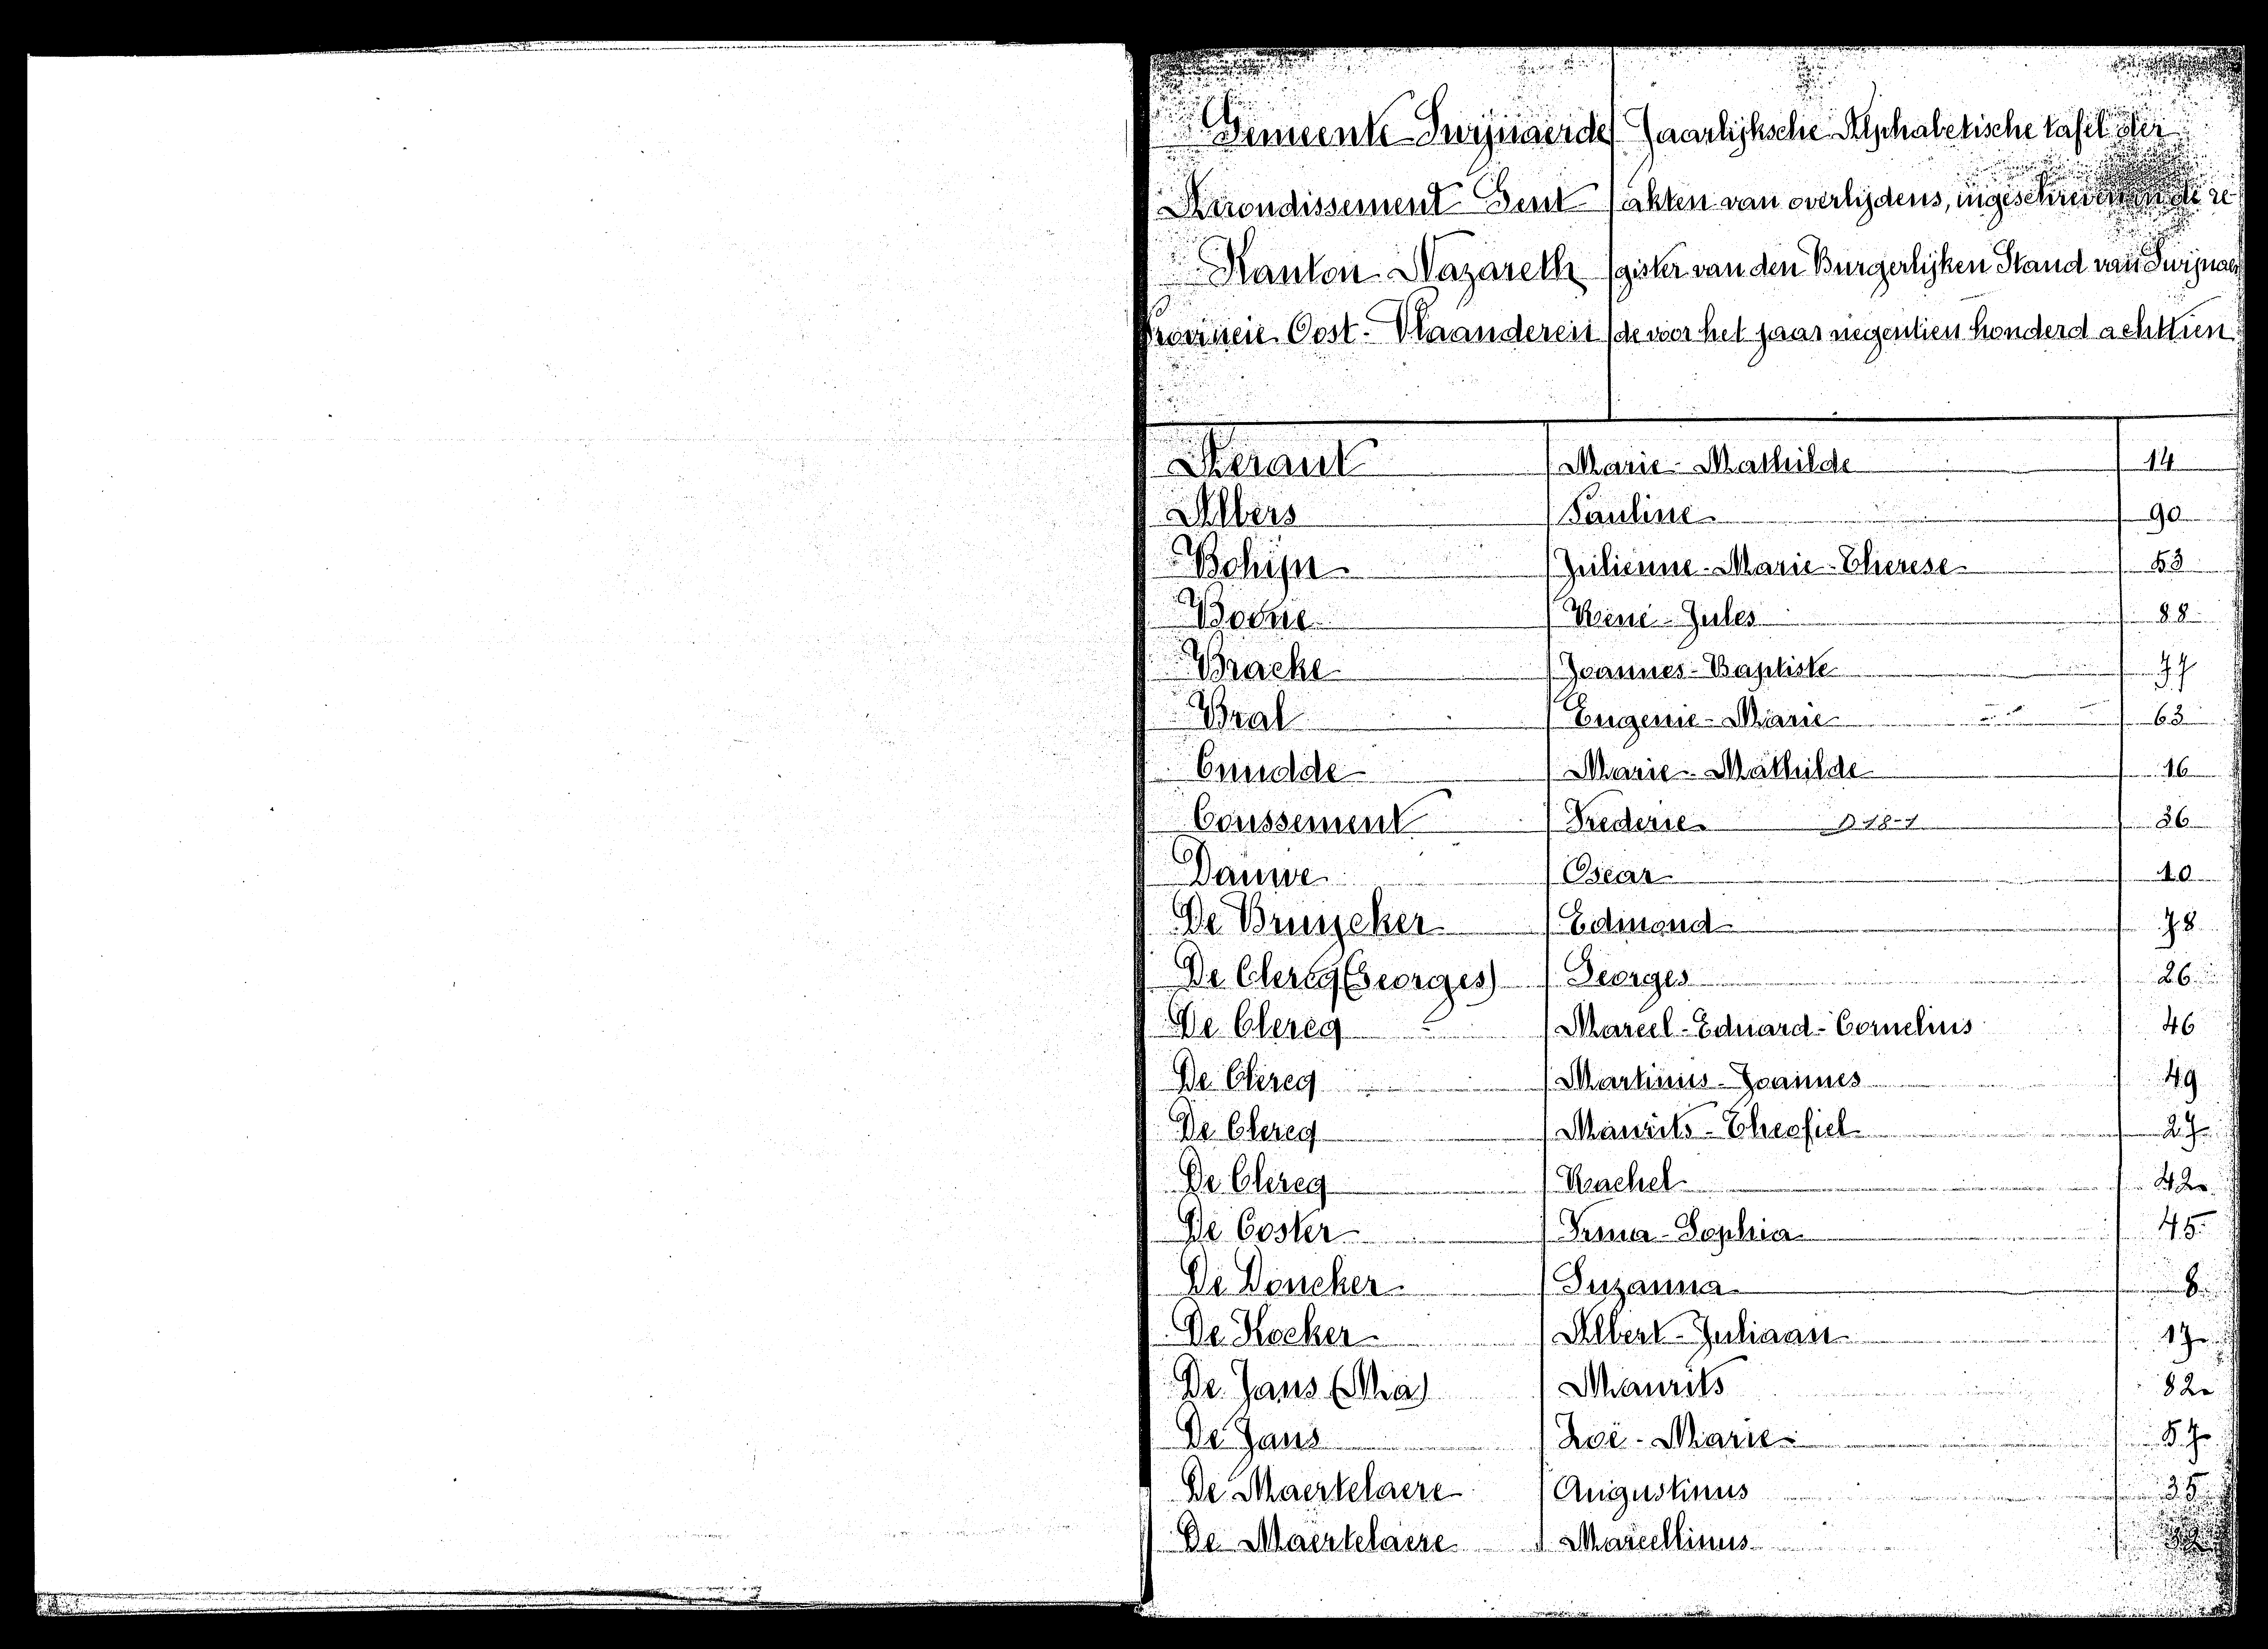 Gemeente Swijnaerde Jaarlijksche Alphabetische tafel der
Arrondissement Gent akten van overlijdens, ingeschreven in de re-
Kanton Nazareth gister van den Burgerlijken Stand van Swijnaer
Provincie Oost-Vlaanderen de voor het jaar negentien honderd achttien
Marie-Mathilde 14
Albers Pauline 90
Bohijn Julienne-Marie-Therese 53
Boone René-Jules 88
Bracke Joannes-Baptiste 77
Bral Eugenie-Marie 63
Cnudde Marie-Mathilde 16
Coussement Frederic 36
Dauwe Oscar 10
De Bruycker Edmond 78
De Clercq (Georges) Georges 26
De Clercq Marcel-Eduard-Cornelius 46
De Clercq Martinus-Joannes 49
De Clercq Maurits-Theofiel 27
De Clercq Rachel 42
De Coster Irma-Sophia 45
De Doncker Suzanna 8
De Kocker Albert-Juliaan 17
De Jans (Ma) Maurits 82
De Jans Zoë-Marie 57
De Maertelaere Augustinus 35
De Maertelaere Marcellinus